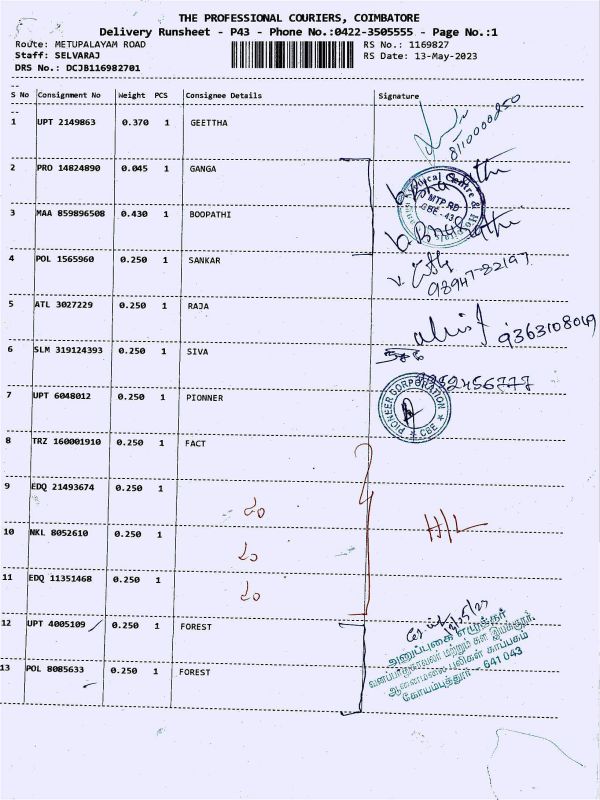 THE PROFESSIONAL COURIERS, COIMBATORE
Delivery Runsheet - P43 - Phone No.:0422-3505555 - Page No.:1
Route: METUPALAYAM ROAD RS No.: 1169827
Staff: SELVARAJ RS Date: 13-May-2023
DRS No.: DCJB116982701
--
S No Consignment No Weight PCS Consignee Details Signature
--
1 UPT 2149863 0.370 1 GEETTHA
8110000250
2 PRO 14824890 0.045 1 GANGA
MTP RD
CBE - 43
3 MAA 859896508 0.430 1 BOOPATHI
4 POL 1565960 0.250 1 SANKAR
98947-82197
5 ATL 3027229 0.250 1 RAJA
9363108049
6 SLM 319124393 0.250 1 SIVA
7 UPT 6048012 0.250 1 PIONNER
PIONEER CORPORATION
★ CBE ★
8 TRZ 160001910 0.250 1 FACT
9 EDQ 21493674 0.250 1
H/L
10 NKL 8052610 0.250 1
11 EDQ 11351468 0.250 1
12 UPT 4005109 0.250 1 FOREST
அனுப்புகை எழுத்தர்
வனப்பாதுகாவலர் மற்றும் கள இயக்குநர்
ஆனைமலை புலிகள் காப்பகம்
கோயம்புத்தூர் - 641 043
13 POL 8085633 0.250 1 FOREST